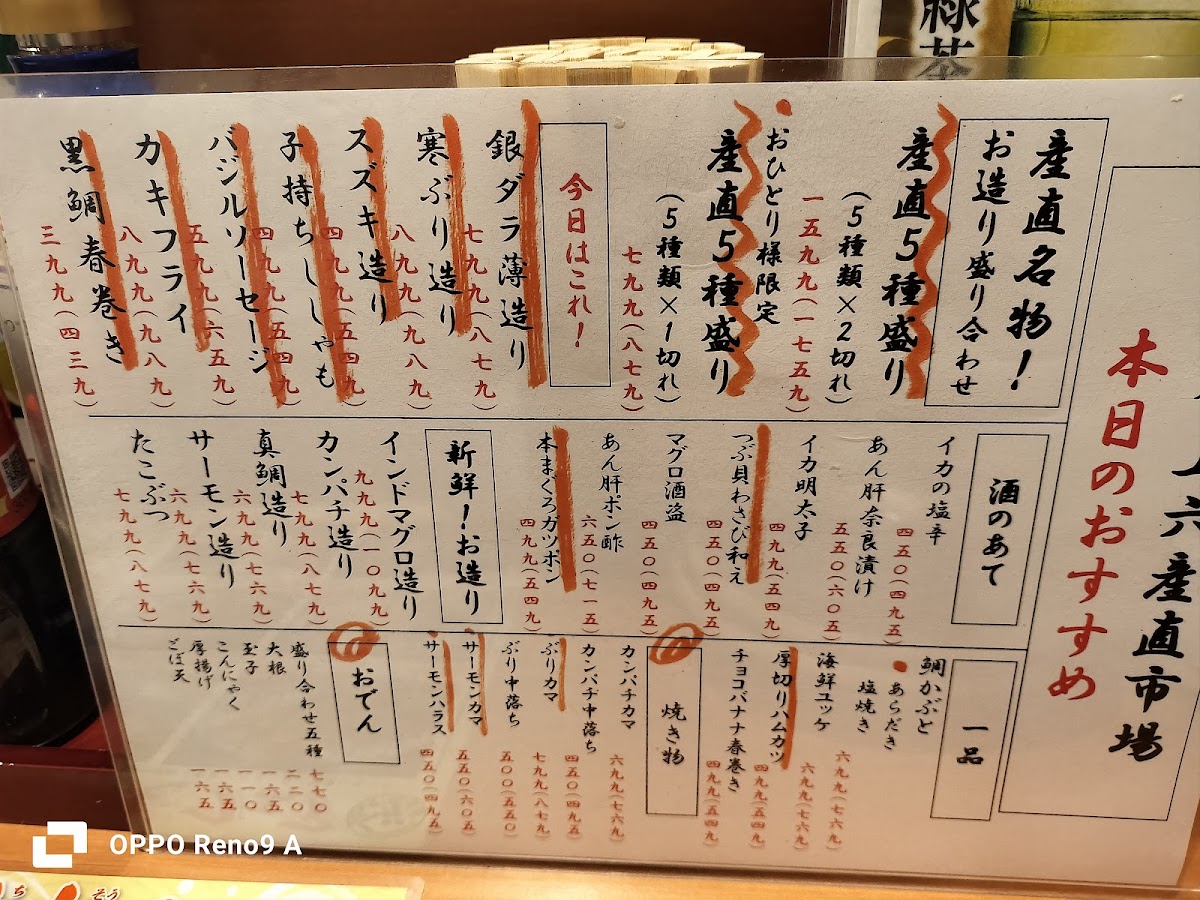 六産直市場
本日のおすすめ
産直名物!
お造り盛り合わせ
産直5種盛り
(5種類×2切れ)
一五九九(一七五九)
おひとり様限定
産直5種盛り
(5種類×1切れ)
七九九(八七九)
今日はこれ!
銀ダラ薄造り
七九九(八七九)
寒ぶり造り
八九九(九八九)
スズキ造り
四九九(五四九)
子持ちししゃも
四九九(五四九)
バジルソーセージ
五九九(六五九)
カキフライ
八九九(九八九)
黒鯛春巻き
三九九(四三九)
酒のあて
イカの塩辛
四五〇(四九五)
あん肝奈良漬け
五五〇(六〇五)
イカ明太子
四九九(五四九)
つぶ貝わさび和え
四五〇(四九五)
マグロ酒盗
四五〇(四九五)
あん肝ポン酢
六五〇(七一五)
本まぐろガツポン
四九九(五四九)
新鮮!お造り
インドマグロ造り
九九九(一〇九九)
カンパチ造り
七九九(八七九)
真鯛造り
六九九(七六九)
サーモン造り
六九九(七六九)
たこぶつ
七九九(八七九)
一品
鯛かぶと
あらだき
塩焼き
六九九(七六九)
海鮮ユッケ
六九九(七六九)
厚切りハムカツ
四九九(五四九)
チョコバナナ春巻き
四九九(五四九)
焼き物
カンパチカマ
六九九(七六九)
カンパチ中落ち
四五〇(四九五)
ぶりカマ
七九九(八七九)
ぶり中落ち
五〇〇(五五〇)
サーモンカマ
五五〇(六〇五)
サーモンハラス
四五〇(四九五)
おでん
盛り合わせ五種
七七〇
大根
二二〇
玉子
一六五
こんにゃく
一一〇
厚揚げ
一六五
ごぼ天
一六五
緑茶
OPPO Reno9 A
ち
そう